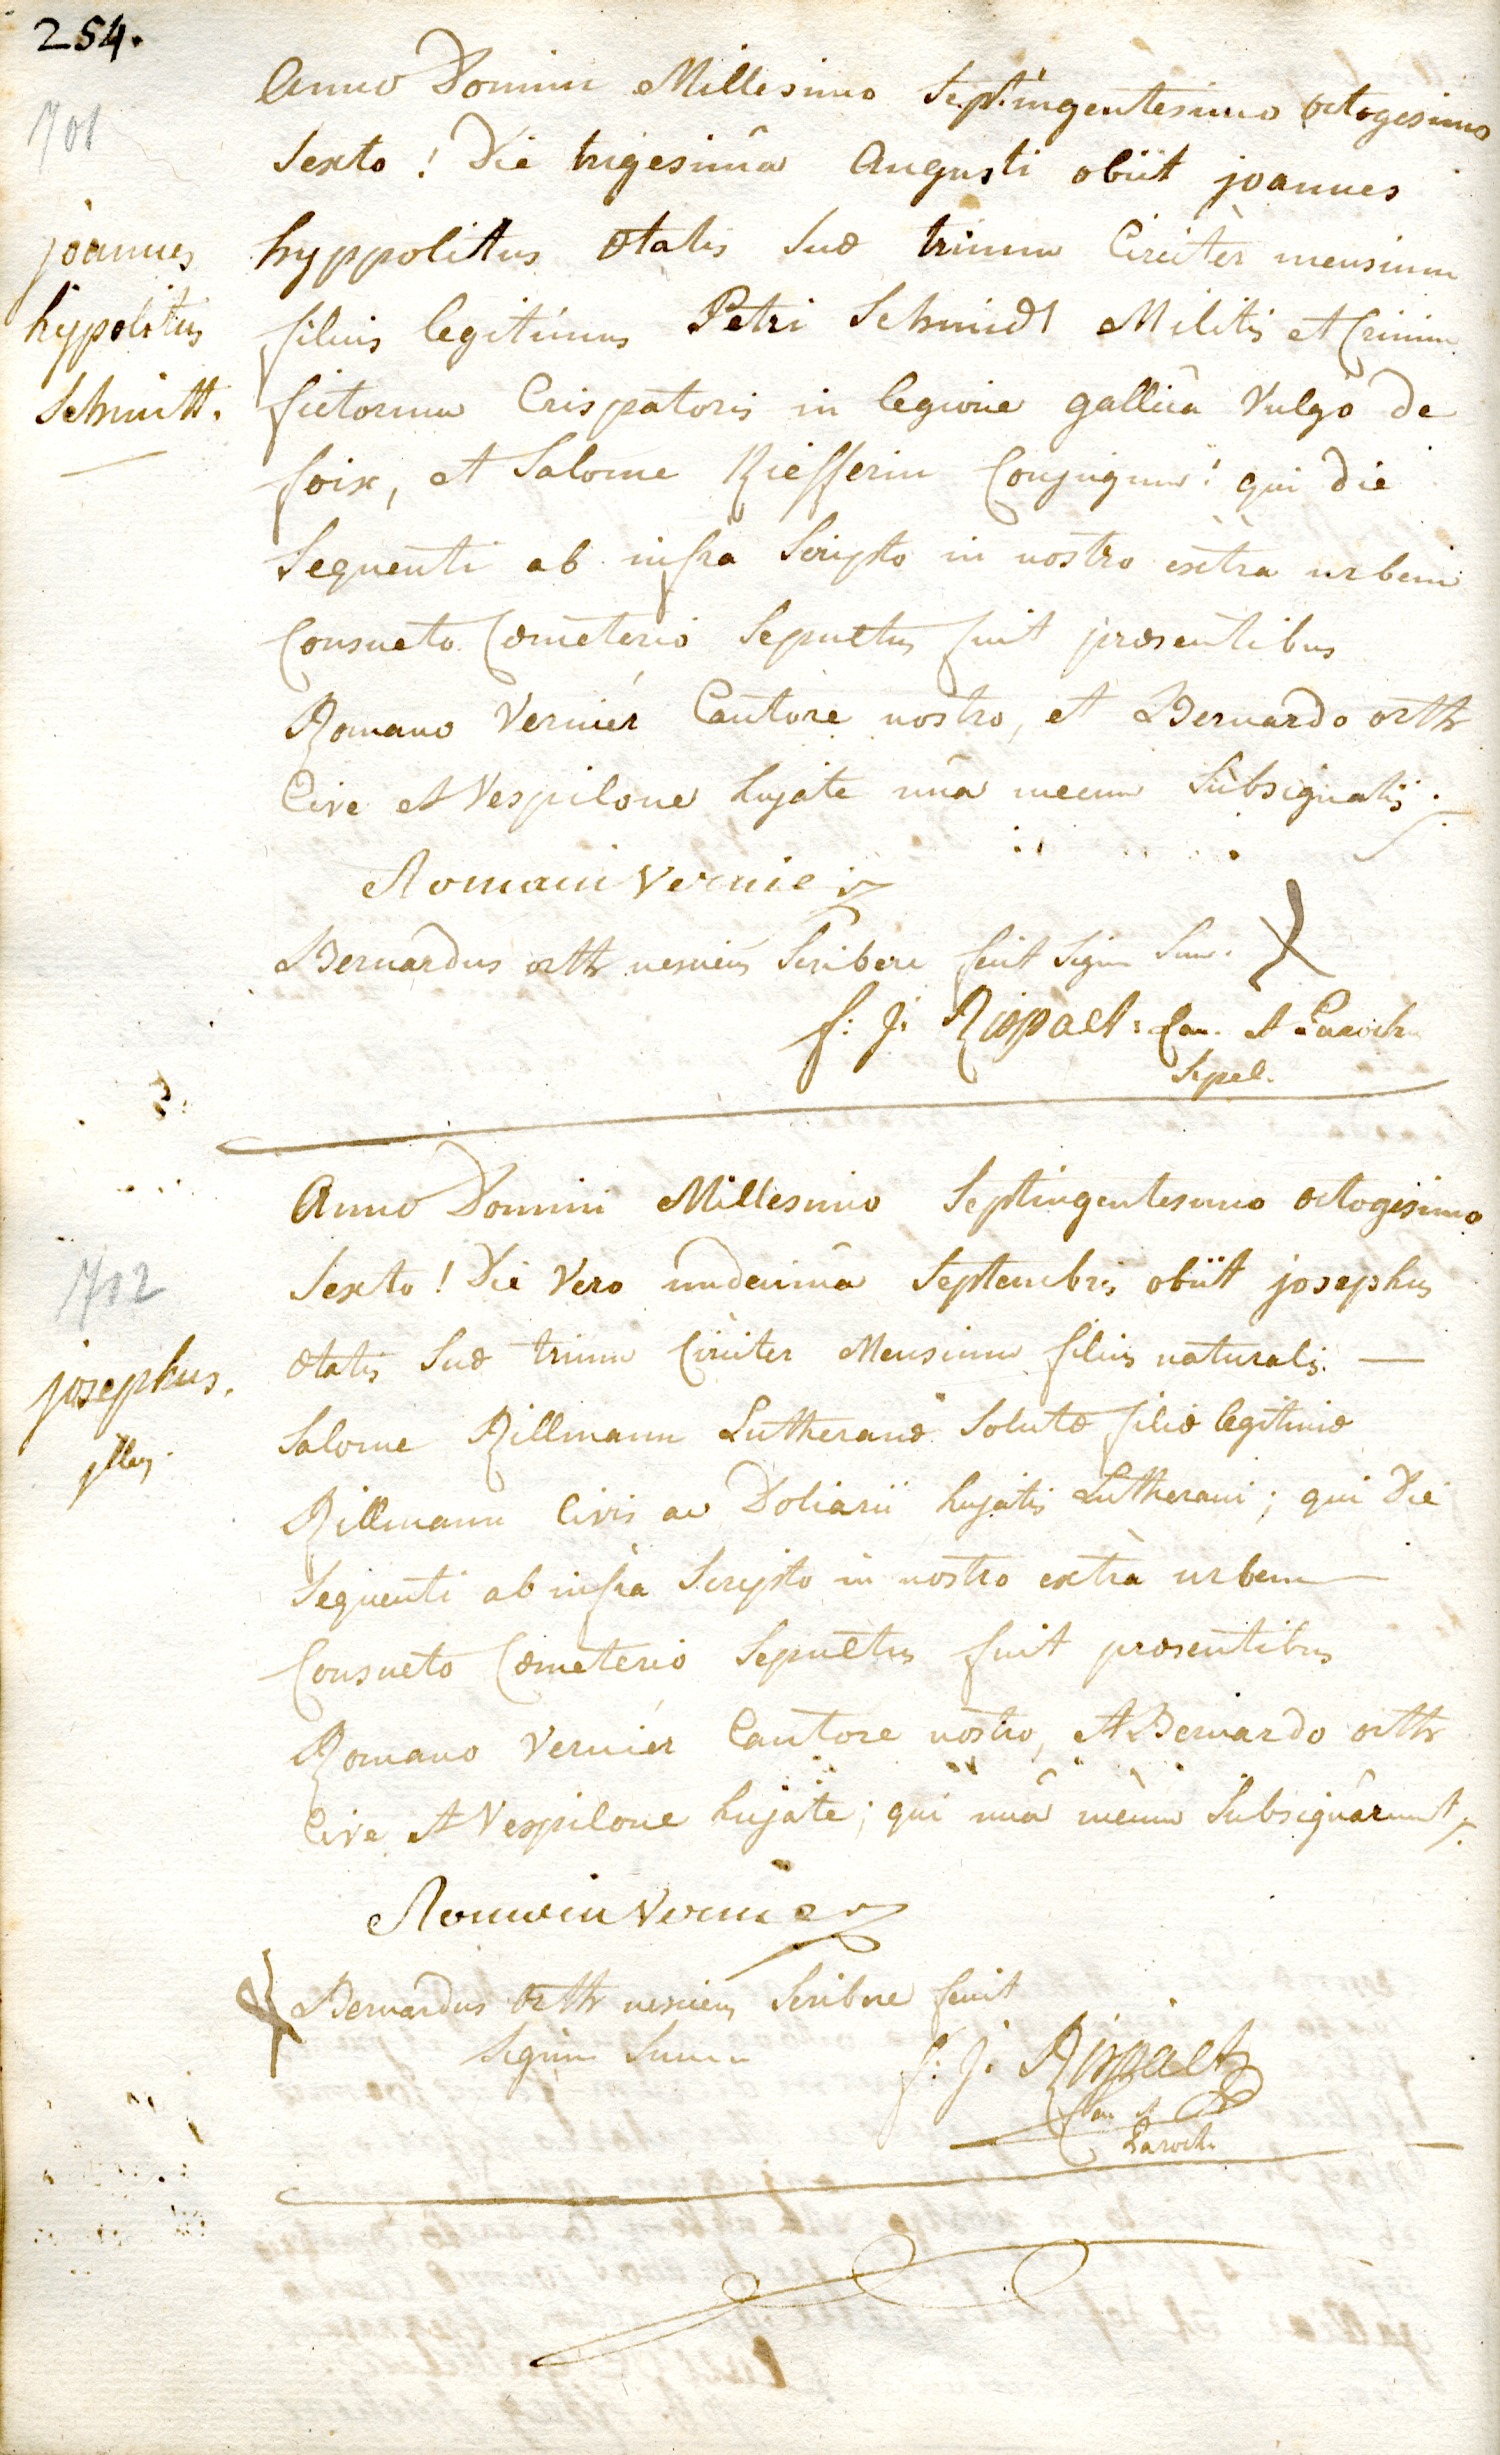 254.
701
Anno Domini Millesimo Septingentesimo octogesimo
Sexto! Die trigesimâ Augusti obiit joannes
hyppolittus ætatis suæ trium Circitèr mensium
filius legitimus Petri Schmidt Militis et Crinium
fictorum Crispatoris in legione gallicâ vulgò de
foix, et Salome Riefferin Conjugum! qui die
Sequenti ab infra Scripto in nostro extra urbem
Consueto Cœmeterio Sepultus fuit præsentibus
Romano Vernier Cantore nostro, et Bernardo orth
Cive et Vespilone hujate unâ mecum Subsignatis.
joannes
hypolitus
Schmitt.
Romain vernier
Bernardus orth nesciens Scribere fecit Signum Suum.
f: j: Rispaelt: Can. et Paroch
Sepel.
Anno Domini Millesimo Septingentesimo octogesimo
Sexto! Die Vero undecimâ Septembris obiit josephus
ætatis Suæ trium Circiter Mensium filius naturalis. —
Salome Rillmann Lutheranæ Solutæ filiæ legitimæ
Rillmann Civis ac Doliarii hujatis Lutherani; qui Die
Sequenti ab infra Scripto in nostro extrà urbem
Consueto Cœmeterio Sepultus fuit præsentibus
Romano Vernier Cantore nostro, et Bernardo orth
Cive et Vespilone hujate; qui unâ mecum Subsignârunt.
702
josephus.
illeg.
Romain vernier
Bernardus orth nesciens Scribere fecit
Signum Suum
f: j: Rispaelt
Can et
Paroch.